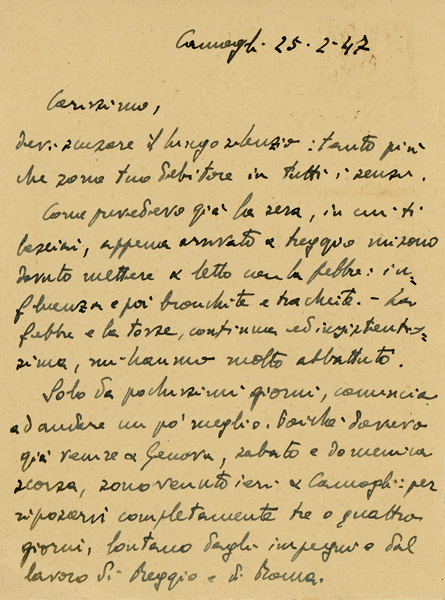 Camogli. 25-2-47
Carissimo,
devi scusare il lungo silenzio: tanto più
che sono tuo debitore in tutti i sensi.
Come prevedevo già la sera, in cui ti
lasciai, appena arrivato a Reggio mi sono
dovuto mettere a letto con la febbre: in-
fluenza e poi bronchite e tracheite. - La
febbre e la tosse, continua ed insistentis-
sima, mi hanno molto abbattuto.
Solo da pochissimi giorni, comincia
ad andare un po' meglio. Poiché dovevo
già venire a Genova, sabato e domenica
scorsa, sono venuto ieri a Camogli: per
riposarvi completamente tre o quattro
giorni, lontano dagli impegni e dal
lavoro di Reggio e di Roma.